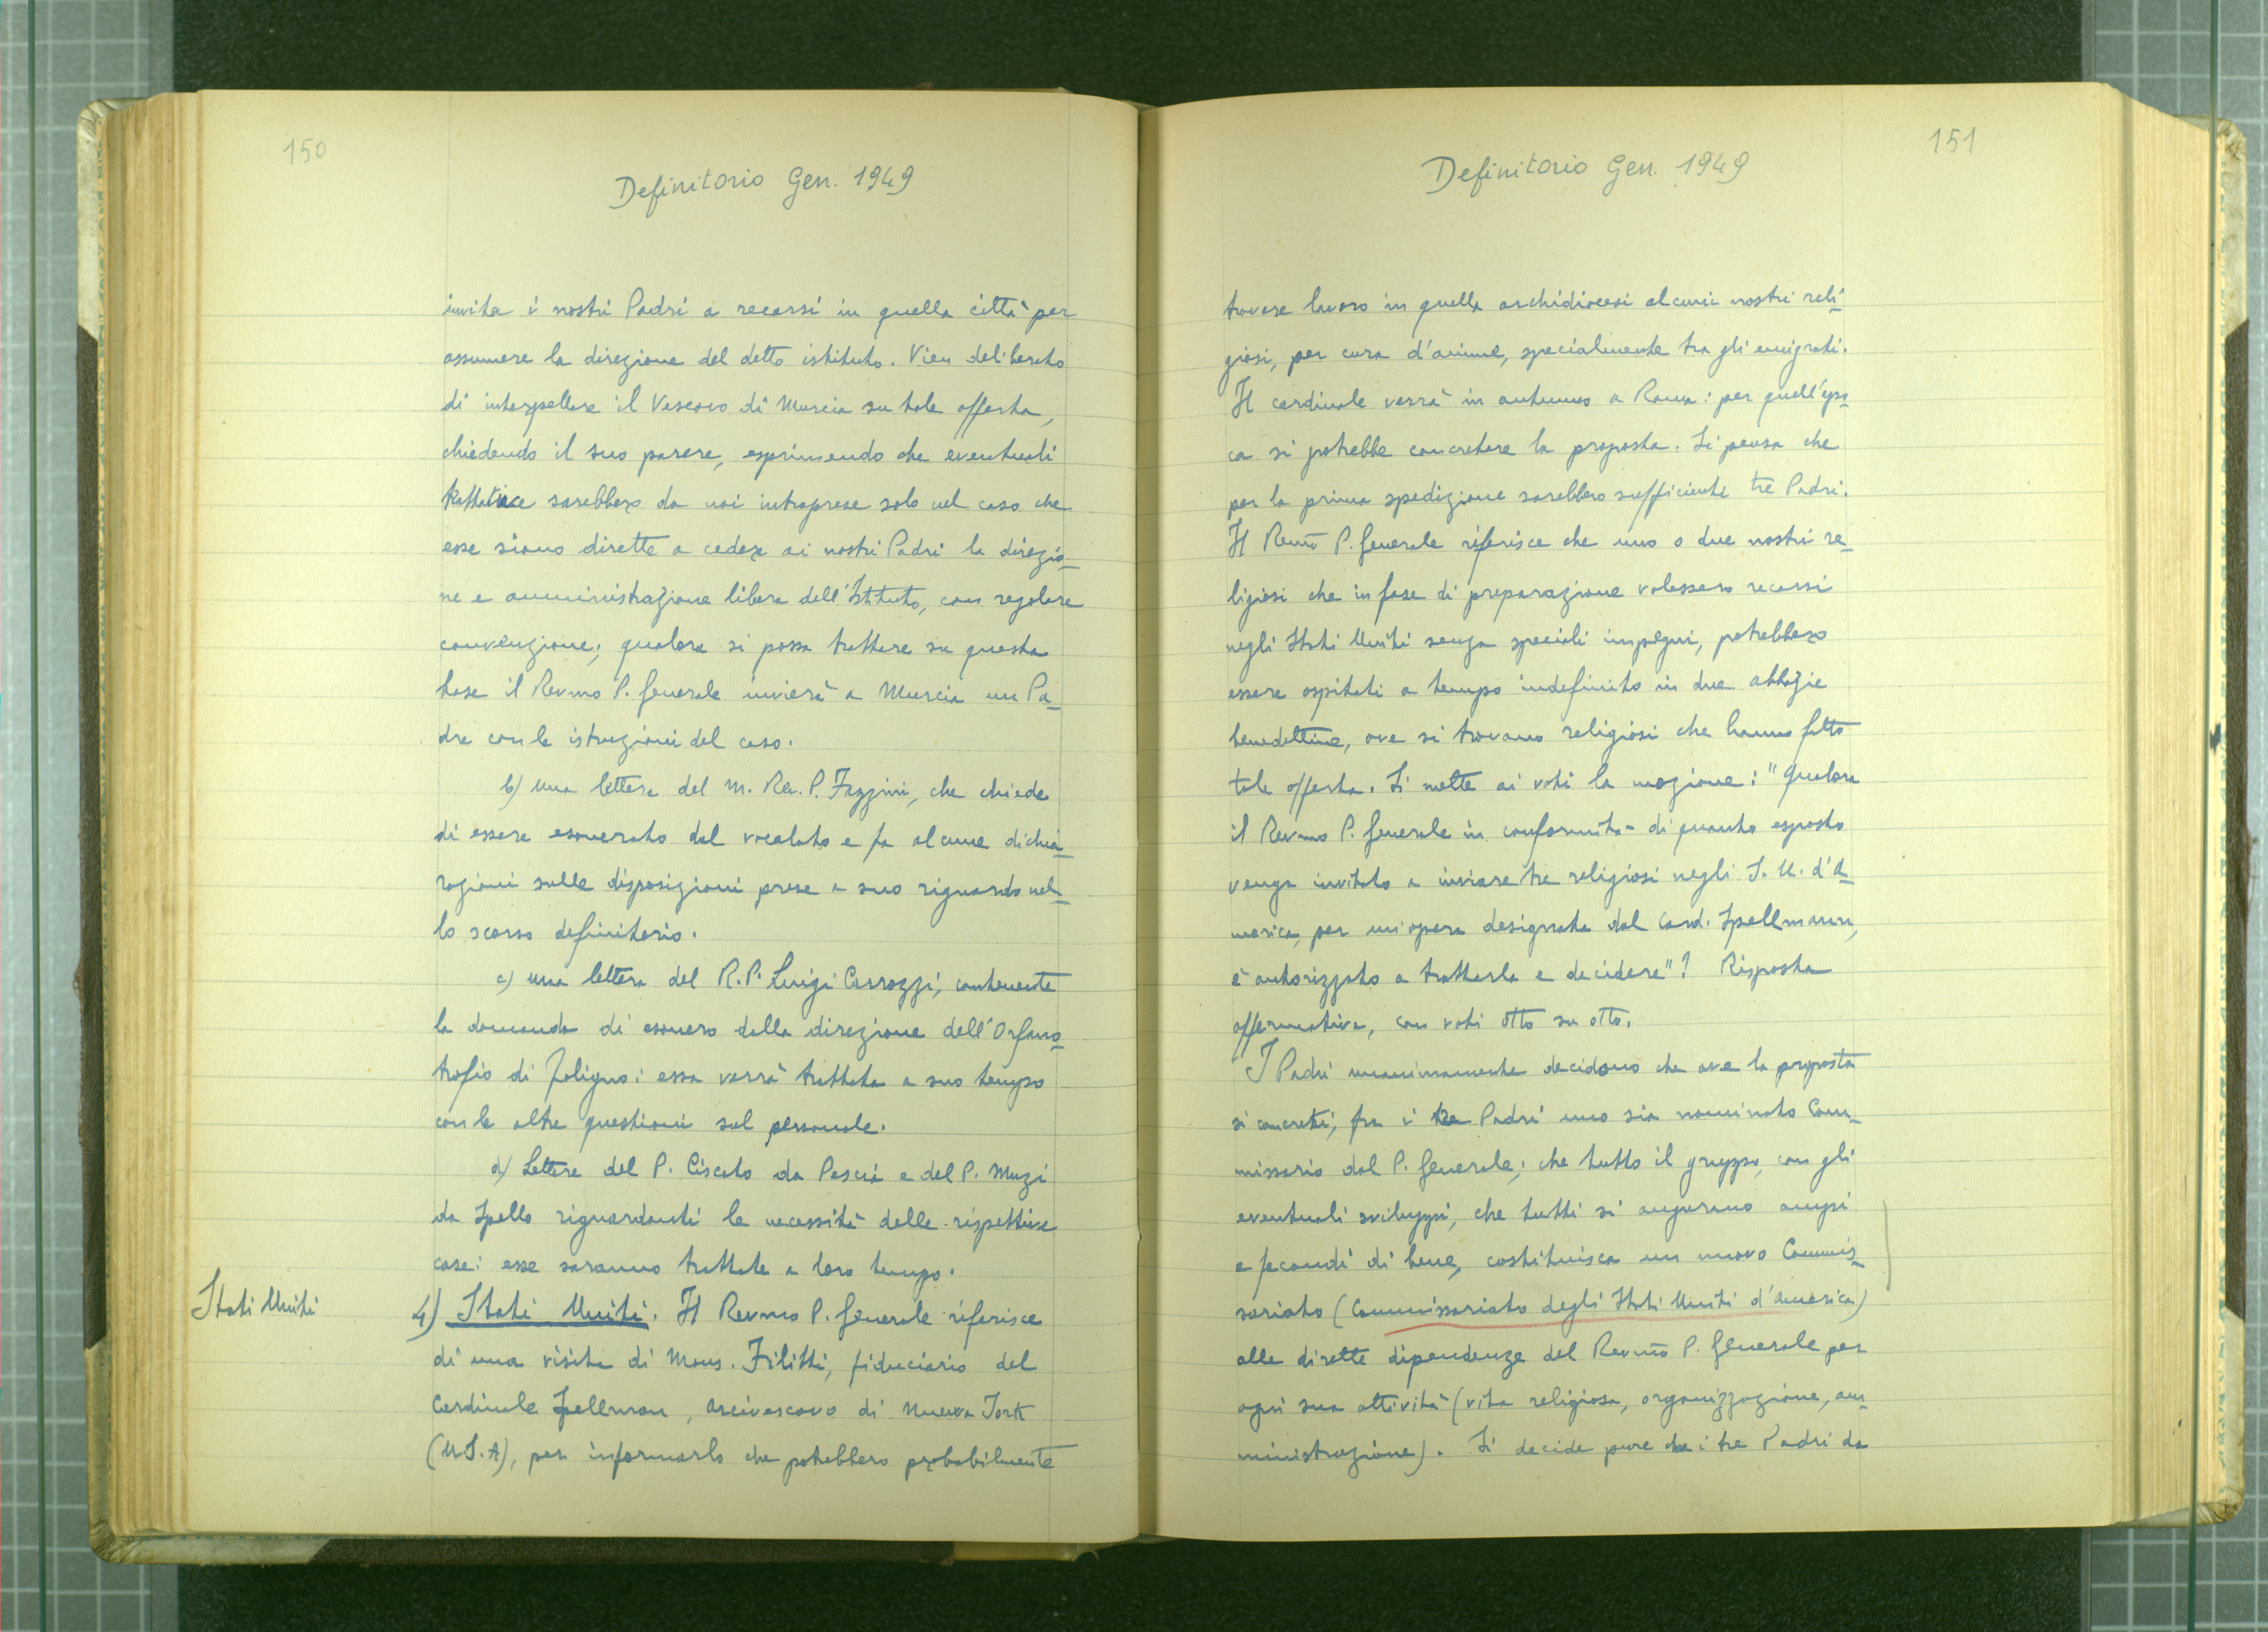 150
Definitorio Gen. 1949
invita i nostri Padri a recarsi in quella città per
assumere la direzione del detto istituto. Vien deliberato
di interpellare il Vescovo di Murcia su tale offerta,
chiedendo il suo parere, esprimendo che eventuali
trattative sarebbero da noi intraprese solo nel caso che
esse siano dirette a cedere ai nostri Padri la direzio-
ne e amministrazione libera dell'Istituto, con regolare
convenzione; qualora si possa trattare su questa
base il Revmo P. Generale invierà a Murcia un Pa-
dre con le istruzioni del caso.
b) una lettera del M. Rev. P. Fazzini, che chiede
di essere esonerato dal vocalato e fa alcune dichia-
razioni sulle disposizioni prese a suo riguardo nel-
lo scorso definitorio.
c) una lettera del R. P. Luigi Carrozzi, contenente
la domanda di esonero dalla direzione dell'Orfano-
trofio di Foligno: essa verrà trattata a suo tempo
con le altre questioni sul personale.
d) Lettere del P. Ciscato da Pescia e del P. Muzi
da Spello riguardanti le necessità delle rispettive
case: esse saranno trattate a loro tempo.
Stati Uniti
4) Stati Uniti. Il Revmo P. Generale riferisce
di una visita di Mons. Filitti, fiduciario del
Cardinale Spellman, Arcivescovo di Nuova York
(U.S.A), per informarlo che potrebbero probabilmente
151
Definitorio Gen. 1949
trovare lavoro in quella archidiocesi alcuni nostri reli-
giosi, per cura d'anime, specialmente tra gli emigrati.
Il cardinale verrà in autunno a Roma: per quell'epo-
ca si potrebbe concretare la proposta. Si pensa che
per la prima spedizione sarebbero sufficienti tre Padri.
Il Revm̃o P. Generale riferisce che uno o due nostri re-
ligiosi che in fase di preparazione volessero recarsi
negli Stati Uniti senza speciali impegni, potrebbero
essere ospitati a tempo indefinito in due abbazie
benedettine, ove si trovano religiosi che hanno fatto
tale offerta. Si mette ai voti la mozione: "Qualora
il Revmo P. Generale in conformità di quanto esposto
venga invitato a inviare tre religiosi negli S. U. d'A-
merica, per un'opera designata dal Card. Spellmann,
è autorizzato a trattarla e decidere"? Risposta
affermativa, con voti otto su otto.
I Padri unanimamente decidono che ove la proposta
si concreti, fra i tre Padri uno sia nominato Com-
missario dal P. Generale; che tutto il gruppo, con gli
eventuali sviluppi, che tutti si augurano ampi
e fecondi di bene, costituisca un nuovo Commis-
sariato (Commissariato degli Stati Uniti d'America)
alle dirette dipendenze del Revm̃o P. Generale per
ogni sua attività (vita religiosa, organizzazione, am-
ministrazione). Si decide pure che i tre Padri da